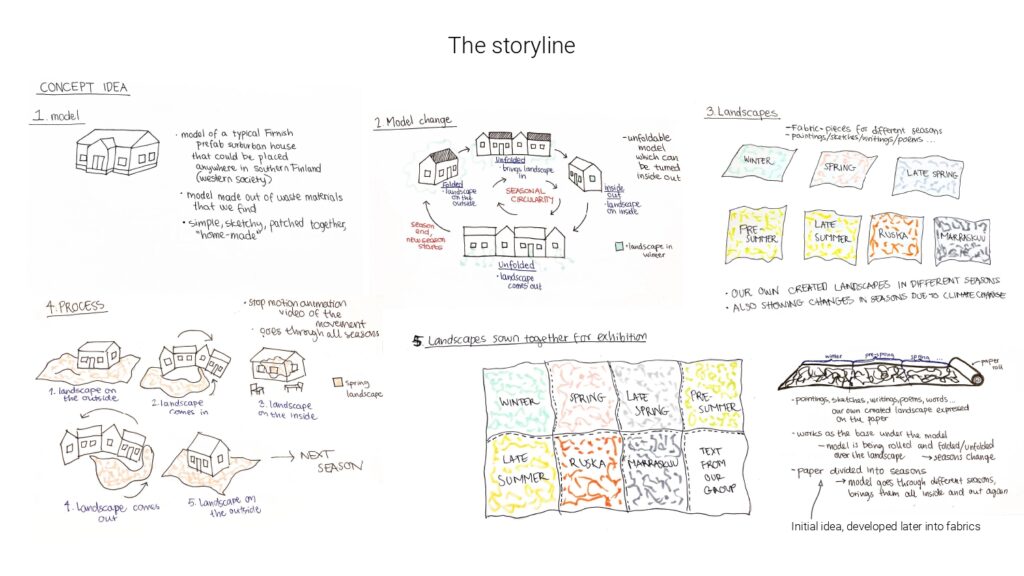 The storyline
CONCEPT IDEA
1. model
• model of a typical Finnish
prefab suburban house
that could be placed
anywhere in southern Finland
(western society)
• model made out of waste materials
that we find
• simple, sketchy, patched together,
"home-made"
2. Model change
Unfolded
- brings landscape
in
Folded
- landscape
on the
outside
SEASONAL
CIRCULARITY
Inside
out
- landscape
on inside
season
end,
new season
starts
Unfolded
- landscape
comes out
- unfoldable
model
which can
be turned
inside out
= landscape in
winter
3. Landscapes
- Fabric pieces for different seasons
- paintings/sketches/writings/poems ...
WINTER
SPRING
LATE SPRING
PRE-
SUMMER
LATE
SUMMER
RUSKA
MARRASKUU
• OUR OWN CREATED LANDSCAPES IN DIFFERENT SEASONS
• ALSO SHOWING CHANGES IN SEASONS DUE TO CLIMATE CHANGE
4. PROCESS
• stop motion animation
video of the
movement
• goes through all seasons
1. landscape on
the outside
2. landscape
comes in
3. landscape
on the inside
= spring
landscape
4. Landscape comes
out
5. Landscape on
the outside
→ NEXT
SEASON
5 Landscapes sown together for exhibition
WINTER
SPRING
LATE
SPRING
PRE-
SUMMER
LATE
SUMMER
RUSKA
MARRASKUU
TEXT
FROM
OUR
GROUP
winter
pre-spring
spring ...
paper
roll
- paintings, sketches, writings, poems, words...
our own created landscape expressed
on the paper
- works as the base under the model
→ model is being rolled and folded/unfolded
over the landscape → seasons change
- paper divided into seasons
→ model goes through different seasons,
brings them all inside and out again
Initial idea, developed later into fabrics